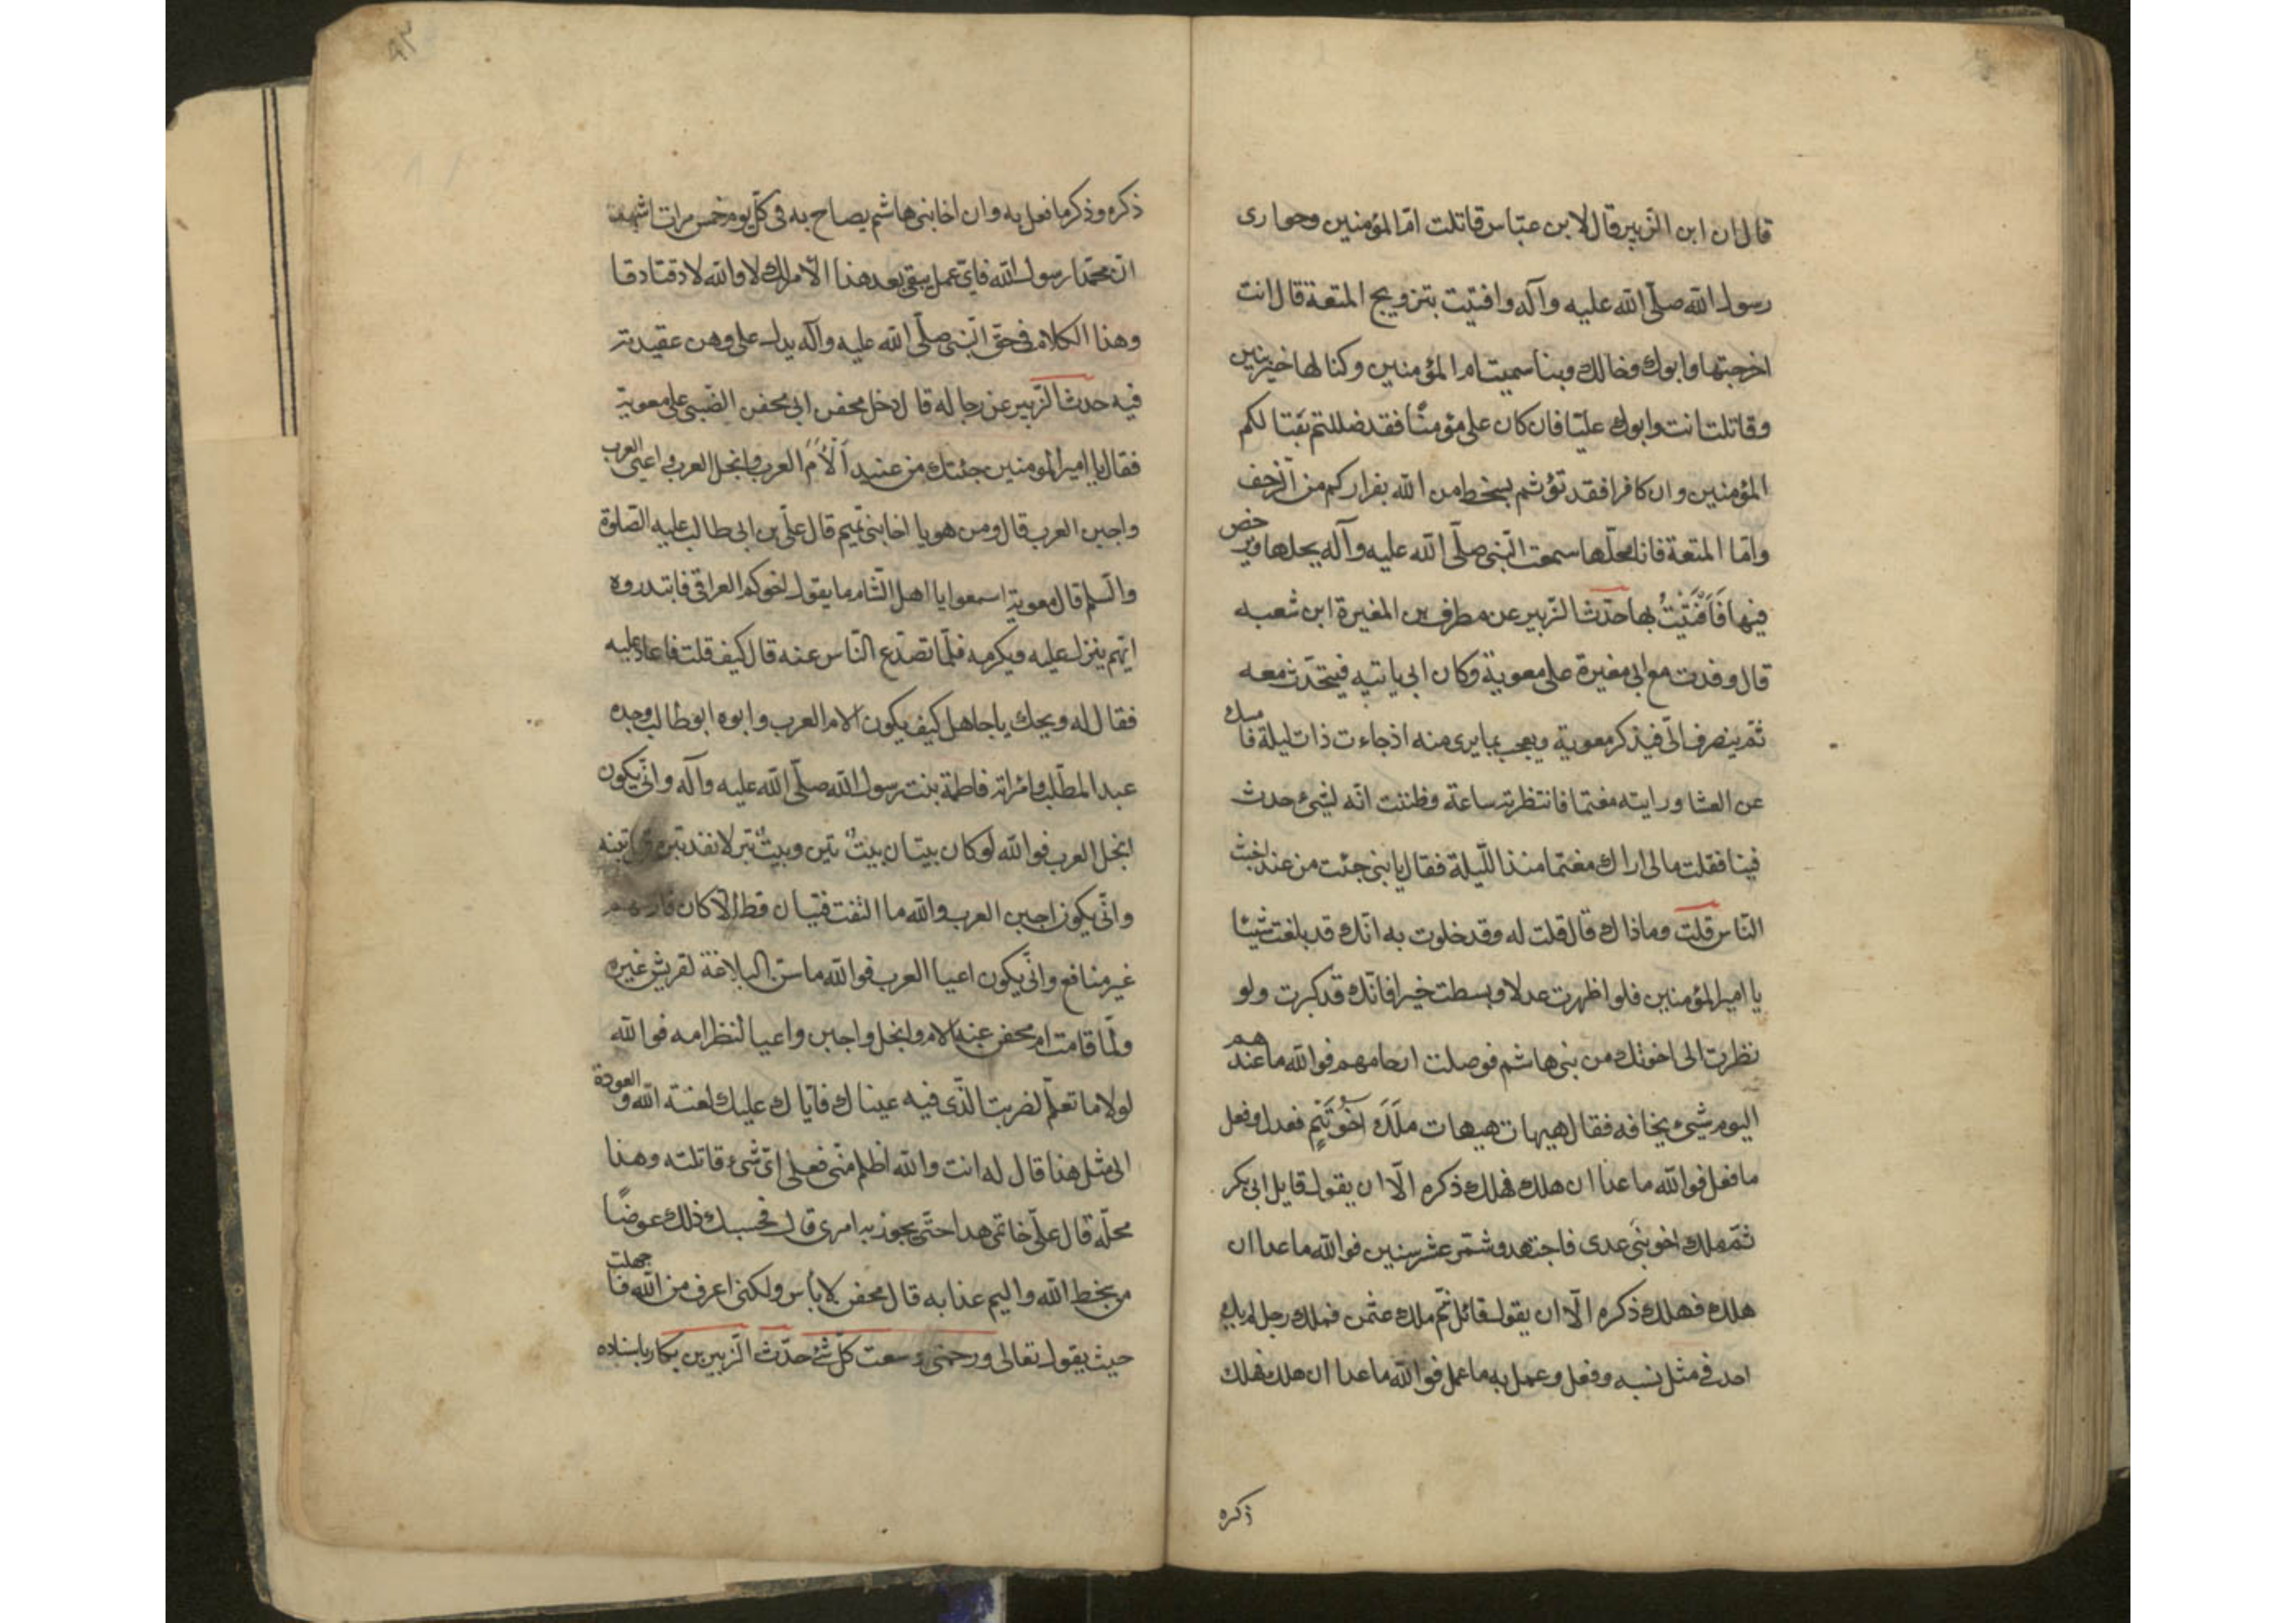 قال ان ابن الزبير قال لابن عباس قاتلت امّ المؤمنين وحوارى
رسول الله صلّى الله عليه وآله وافتيت بتزويج المتعة قال انت
اخرجتها وابوك وخالك وبنا سميت ام المؤمنين وكنا لها خير بنين
وقاتلت انت وابوك عليّا فان كان على مؤمنًا فقد ضللتم بقتالكم
المؤمنين وان كافرا فقد بؤتم بسخط من الله بفراركم من الزحف
وامّا المتعة فانا نحلّها سمعت النبى صلّى الله عليه وآله يحلها ويرخص
فيها فَاَفْتَيْتُ بها حدّث الزبير عن مطرف بن المغيرة ابن شعبه
قال وفدت مع ابى مغيرة على معوية وكان ابى ياتيه فيتحدّث معه
ثمّ ينصرف الىّ فيذكر معوية ويعجب بما يرى منه اذ جاءت ذات ليلة فامسك
عن العشا ورايته مغتما فانتظرته ساعة وظننت انّه لشئ حدث
فينا فقلت مالى اراك مغتما منذ اللّيلة فقال يا بنى جئت من عند اخبث
النّاس قلت وما ذاك قال قلت له وقد خلوت به انّك قد بلغت شيئا
يا امير المؤمنين فلو اظهرت عدلا وبسطت خيرا فانّك قد كبرت ولو
نظرت الى اخوتك من بنى هاشم فوصلت ارحامهم فوالله ما عندهم
اليوم شئ يخافه فقال هيهات هيهات مَلَكَ اَخُو تَيْمٍ فعدل وفعل
ما فعل فوالله ما عدا ان هلك فهلك ذكره الّا ان يقول قايل ابى بكر
ثمّ ملك اخو بنى عدى فاجتهد وشمّر عشر سنين فوالله ما عدا ان
هلك فهلك ذكره الّا ان يقول قائل ثمّ ملك عثمن فملك رجل لم يك
احد فى مثل نسبه وفعل وعمل به ما عمل فوالله ما عدا ان هلك فهلك
ذكره
ذكره وذكر ما فعل به وان اخا بنى هاشم يصاح به فى كلّ يوم خمس مرات اشهد
انّ محمّدا رسول الله فاىّ عمل يبقى بعد هذا لا امّ لك لا والله لا دفنا دفنا
وهذا الكلام فى حق النبى صلّى الله عليه وآله يدل على وهن عقيدته
فيه حدث الزبير عن رجاله قال دخل محفن ابى محفن الضبى على معوية
فقال يا امير المؤمنين جئتك من عند اَلْأَم العرب وابخل العرب واعيى العرب
واجبن العرب قال ومن هو يا اخا بنى تميم قال علىّ بن ابى طالب عليه الصّلوة
والسلم قال معوية اسمعوا يا اهل الشّام ما يقول اخوكم العراقى فابتدروه
ايّهم ينزل عليه ويكرمه فلمّا تصدّع النّاس عنه قال كيف قلت فاعاد عليه
فقال له ويحك يا جاهل كيف يكون الام العرب وابوه ابو طالب وجده
عبد المطّلب وامرأته فاطمة بنت رسول الله صلّى الله عليه وآله وانّى يكون
ابخل العرب فوالله لو كان بيتان بيتُ تبن وبيتُ تبر لانفد تبره قبل تبنه
وانّى يكون اجبن العرب والله ما التقت فئتان قط الّا كان فارسهم
غير منافع وانّى يكون اعيا العرب فوالله ما سنّ البلاغة لقريش غيره
ولمّا قامت ام محفن عنه الام وابخل واجبن واعيا لنظر امه فوالله
لولا ما تعلم لضربت الّذى فيه عيناك فايّاك عليك لعنة الله والعودة
الى مثل هذا قال له انت والله اظلم منّى فعلى اىّ شئ قاتلته وهذا
محلّه قال علىّ خاتمى هذا حتّى يجوز به امرى قال فحسبك ذلك عوضًا
من سخط الله واليم عذابه قال محفن لا بأس ولكنى اعرف من الله ما جهلت
حيث يقول تعالى ورحمتى وسعت كلّ شئ حدّث الزّبير بن بكار باسناده